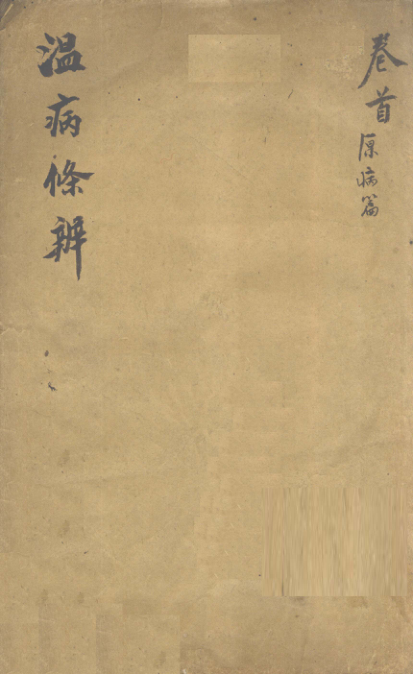 卷首原病篇
温病條辨